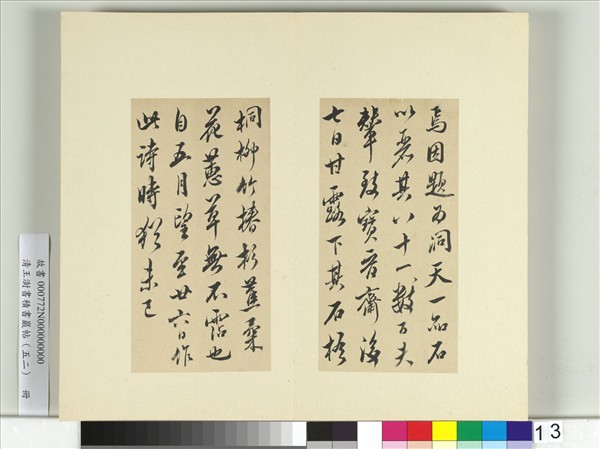 焉因題為洞天一品石
以其八十一數百夫
輦致寶晉齋
七日甘露下其石梧
桐柳竹椿杉蕉桑
花蕙草無不霑也
自五月望至廿六日作
此詩時猶未已
故書 000772N000000000
清王澍書積書巖帖（五二）　冊
13